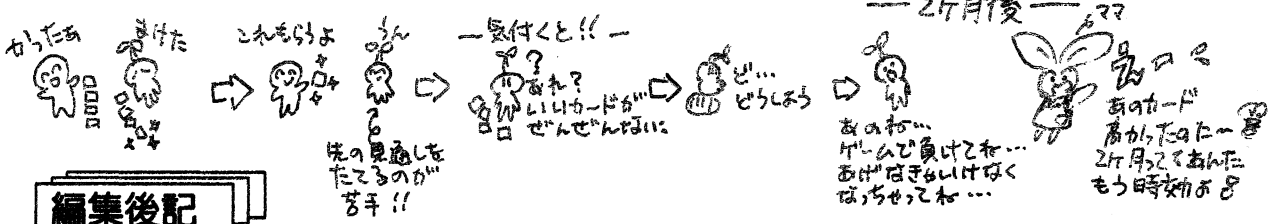 かったぁ
まけた
これもらうよ
うん
先の見通しを
たてるのが
苦手!!
―気付くと!!―
?
あれ?
いいカードが
ぜんぜんない。
ど…
どうしよう
―2ヶ月後―
あのね…
ゲームで負けてね…
あげなきゃいけなく
なっちゃってね…
ママ
えっ
あのカード
高かったのに〜
2ヶ月ってあんた
もう時効よ
編集後記